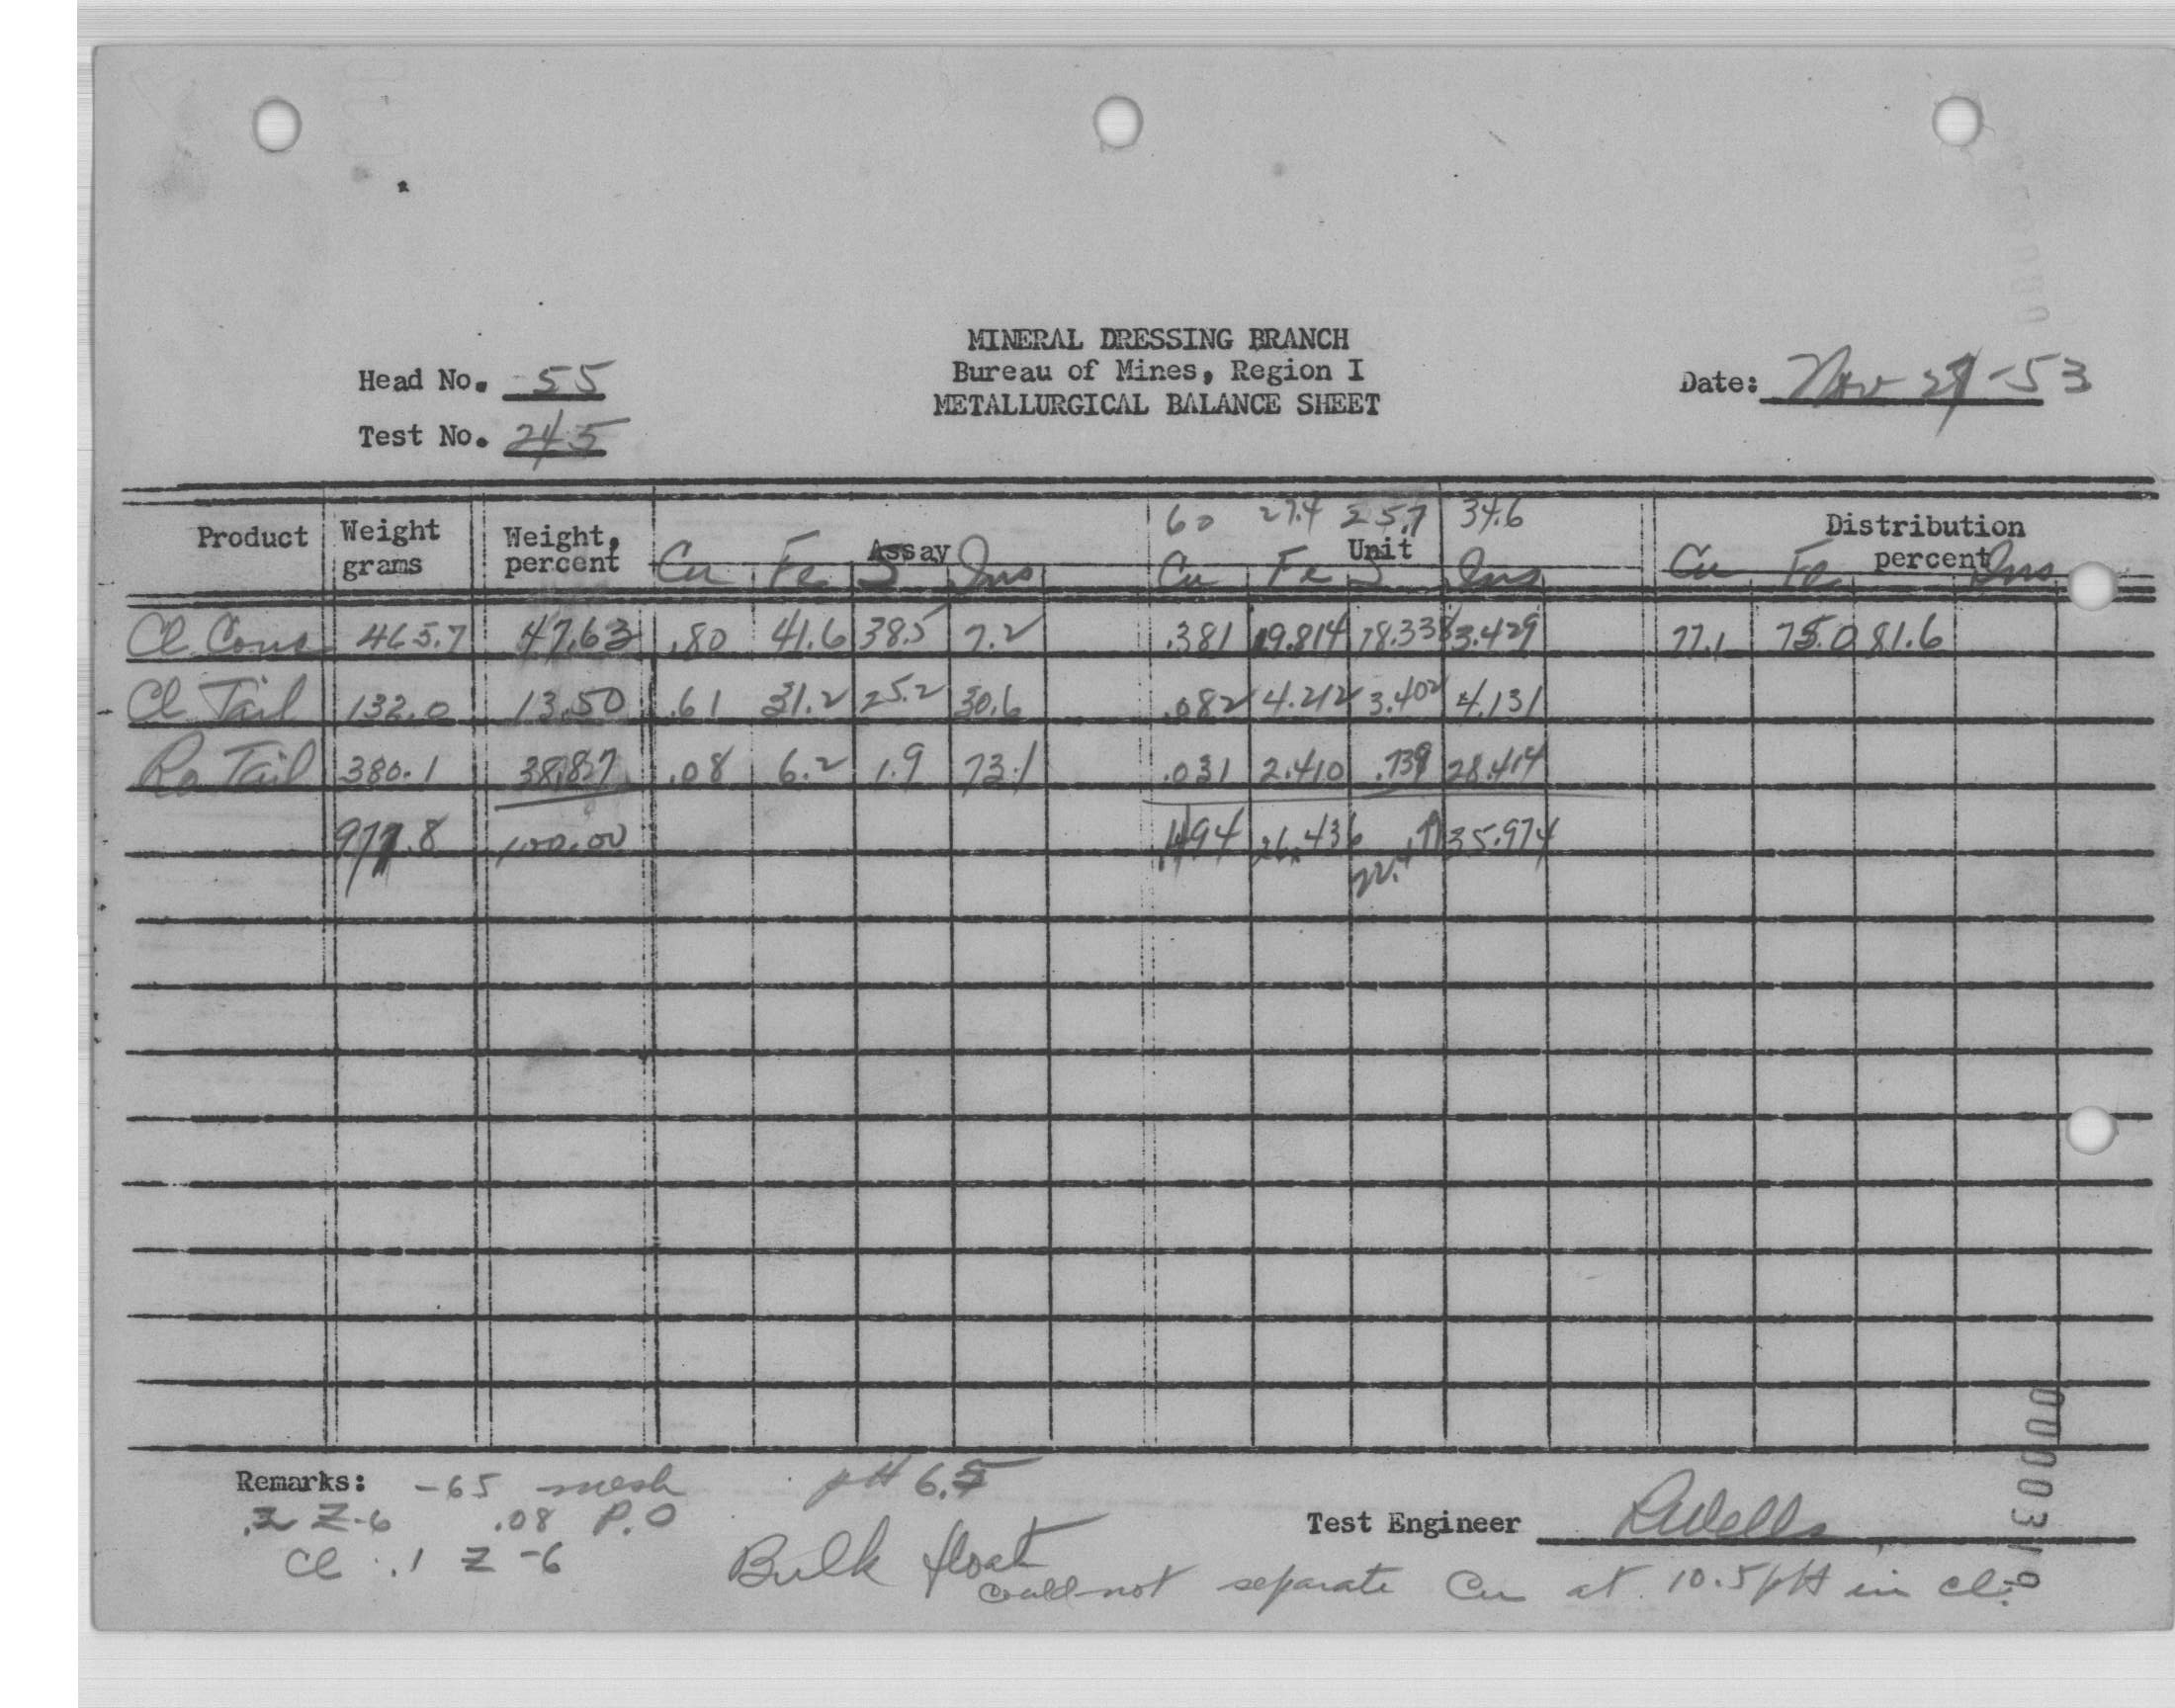 MINERAL DRESSING BRANCH
Head No. 55 Bureau of Mines, Region I Date: Nov 27-53
METALLURGICAL BALANCE SHEET
Test No. 245
60 27.4 25.7 34.6
Product Weight grams Weight, percent Assay Unit Distribution percent
Cu Fe S Ins Cu Fe S Ins Cu Fe Ins
Cl Conc 465.7 47.63 .80 41.6 38.5 7.2 .381 19.814 18.338 3.429 77.1 75.0 81.6
Cl Tail 132.0 13.50 .61 31.2 25.2 30.6 .082 4.212 3.402 4.131
Ro Tail 380.1 38.87 .08 6.2 1.9 73.1 .031 2.410 .739 28.414
977.8 100.00 .494 26.436 35.974
Remarks: -65 mesh pH 6.5
.2 Z-6 .08 P.O
Test Engineer RWells
Cl .1 Z-6 Bulk float
could not separate Cu at 10.5 pH in cl.